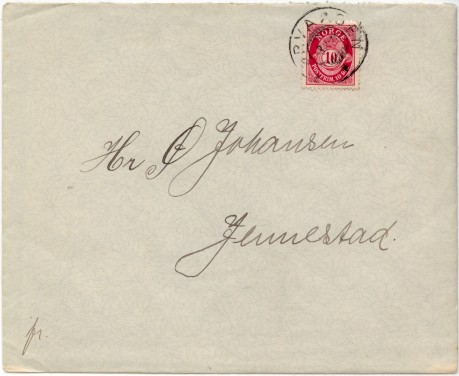 NORGE
10
POSTFRIM. 10 ØRE
Hr Ø Johansen
Jennestad.
fr.